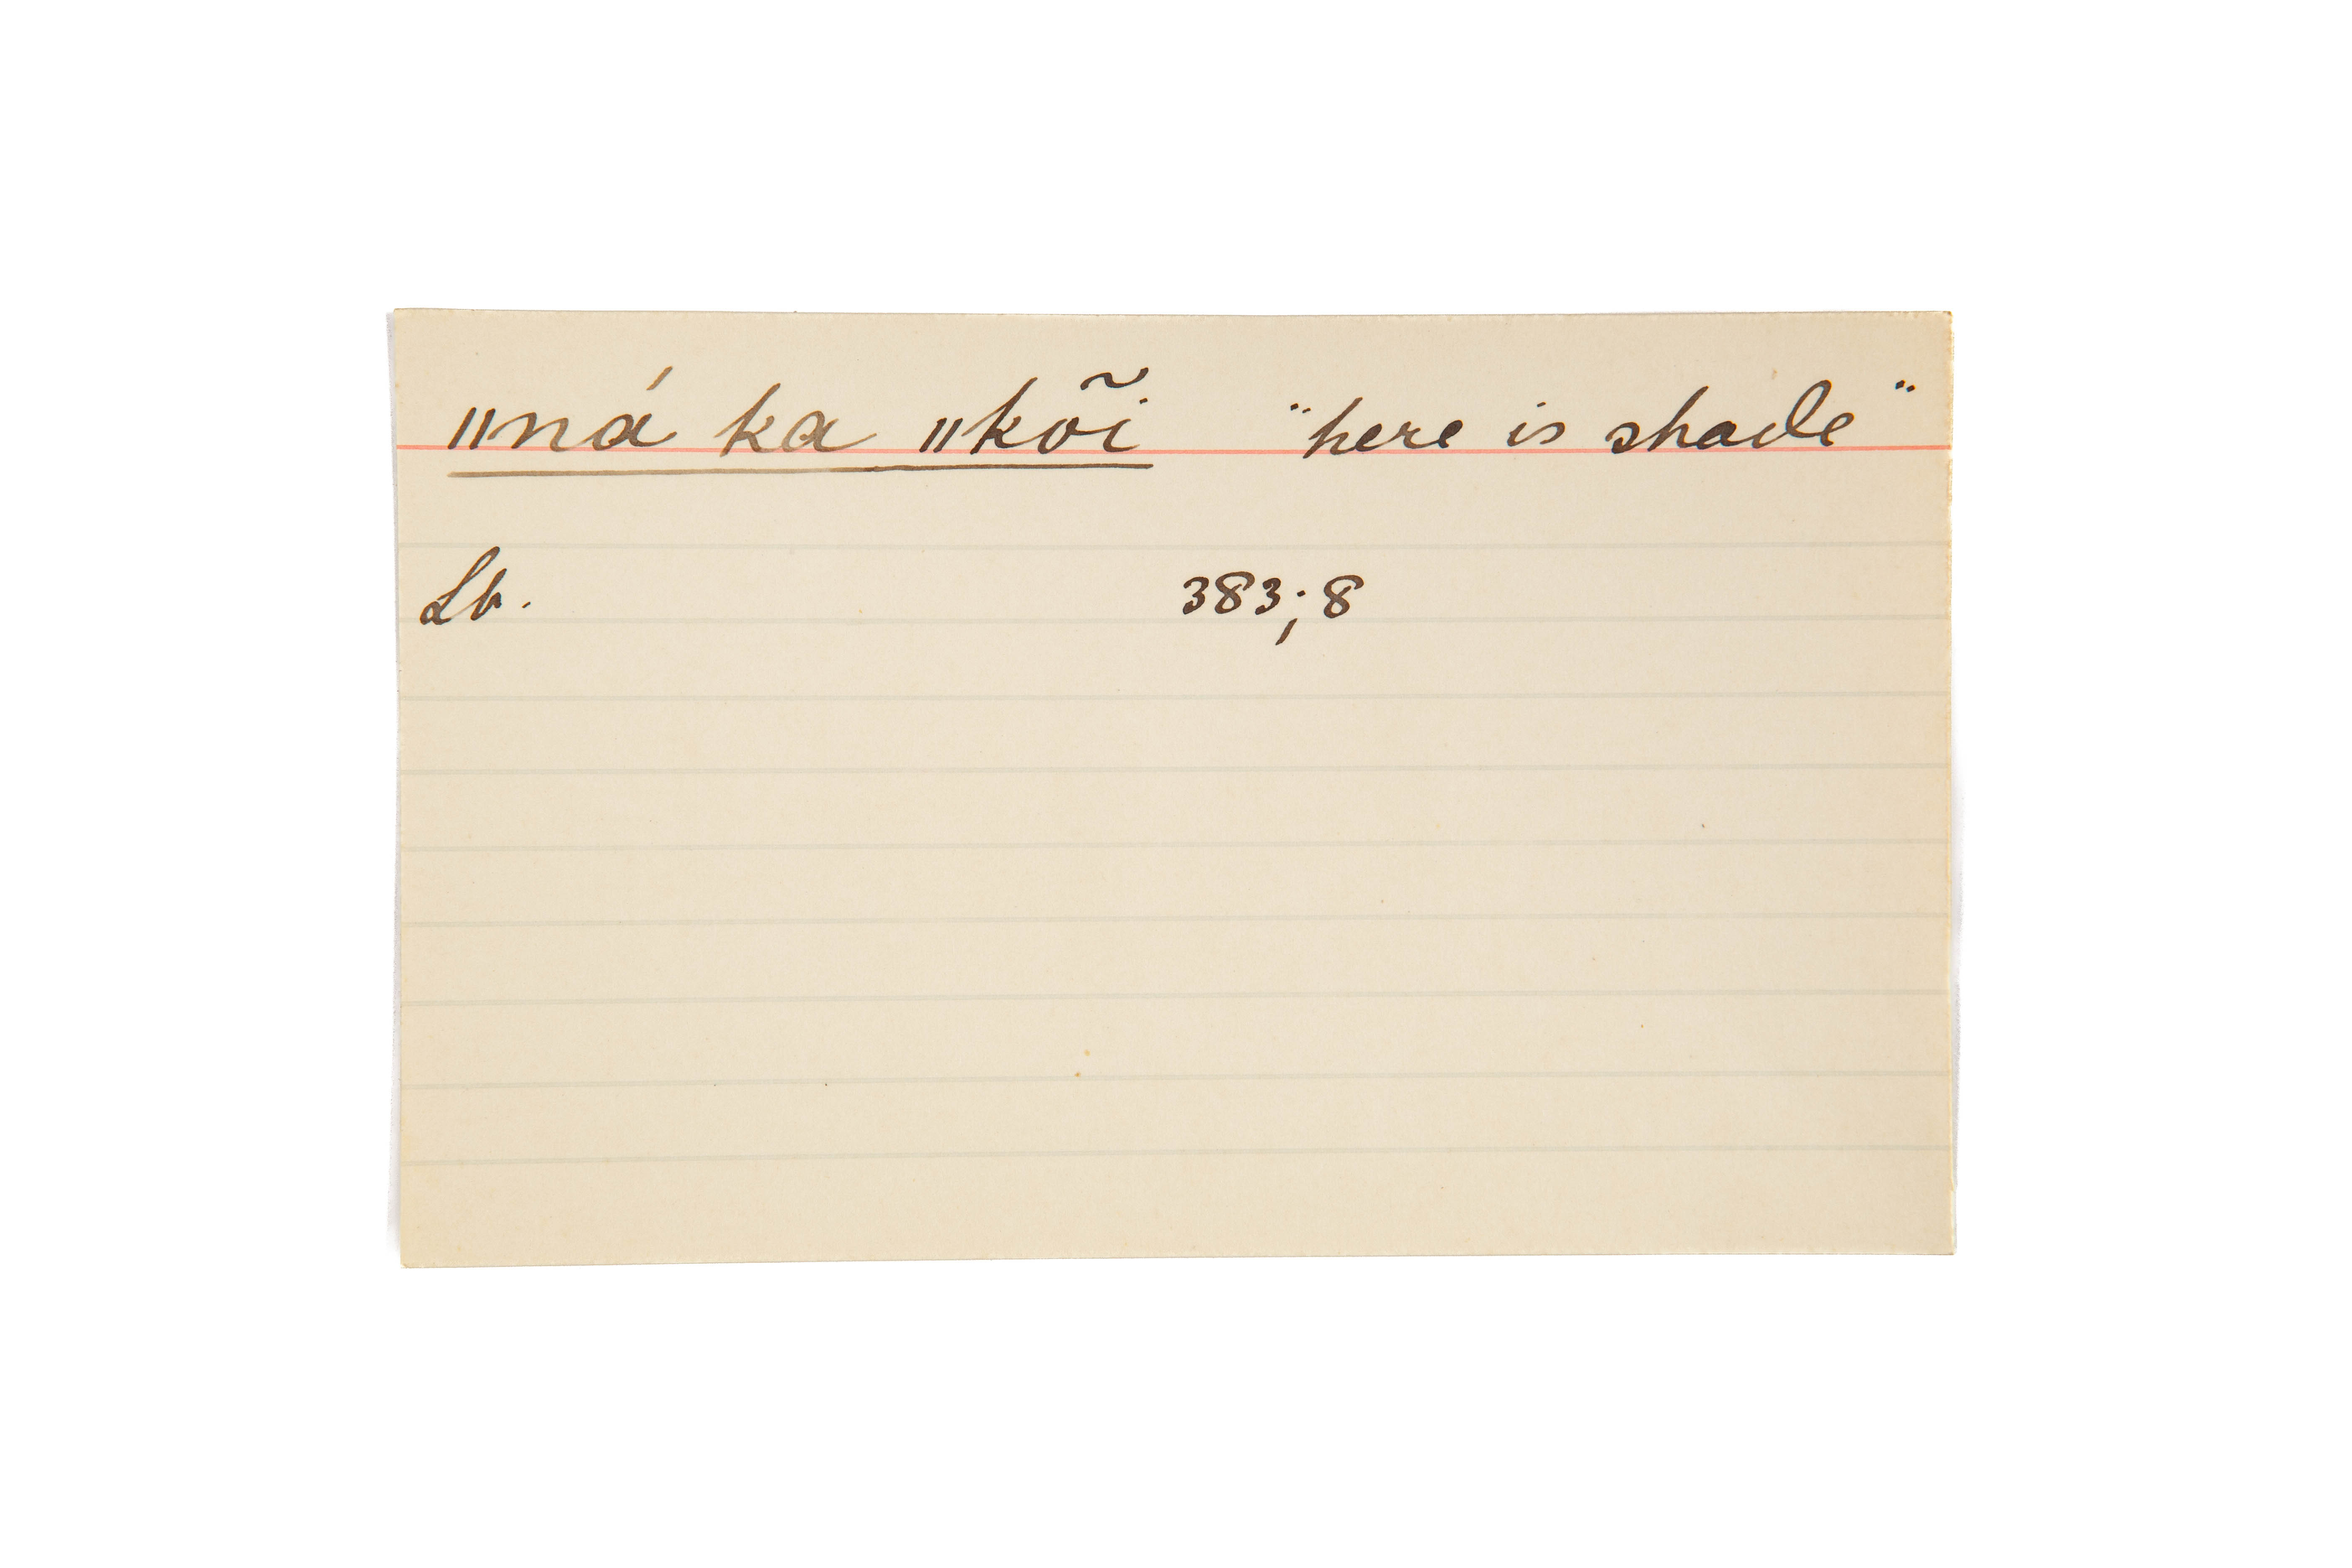 ǁná ka ǁkõĩ "here is shade"
Lb. 383;8